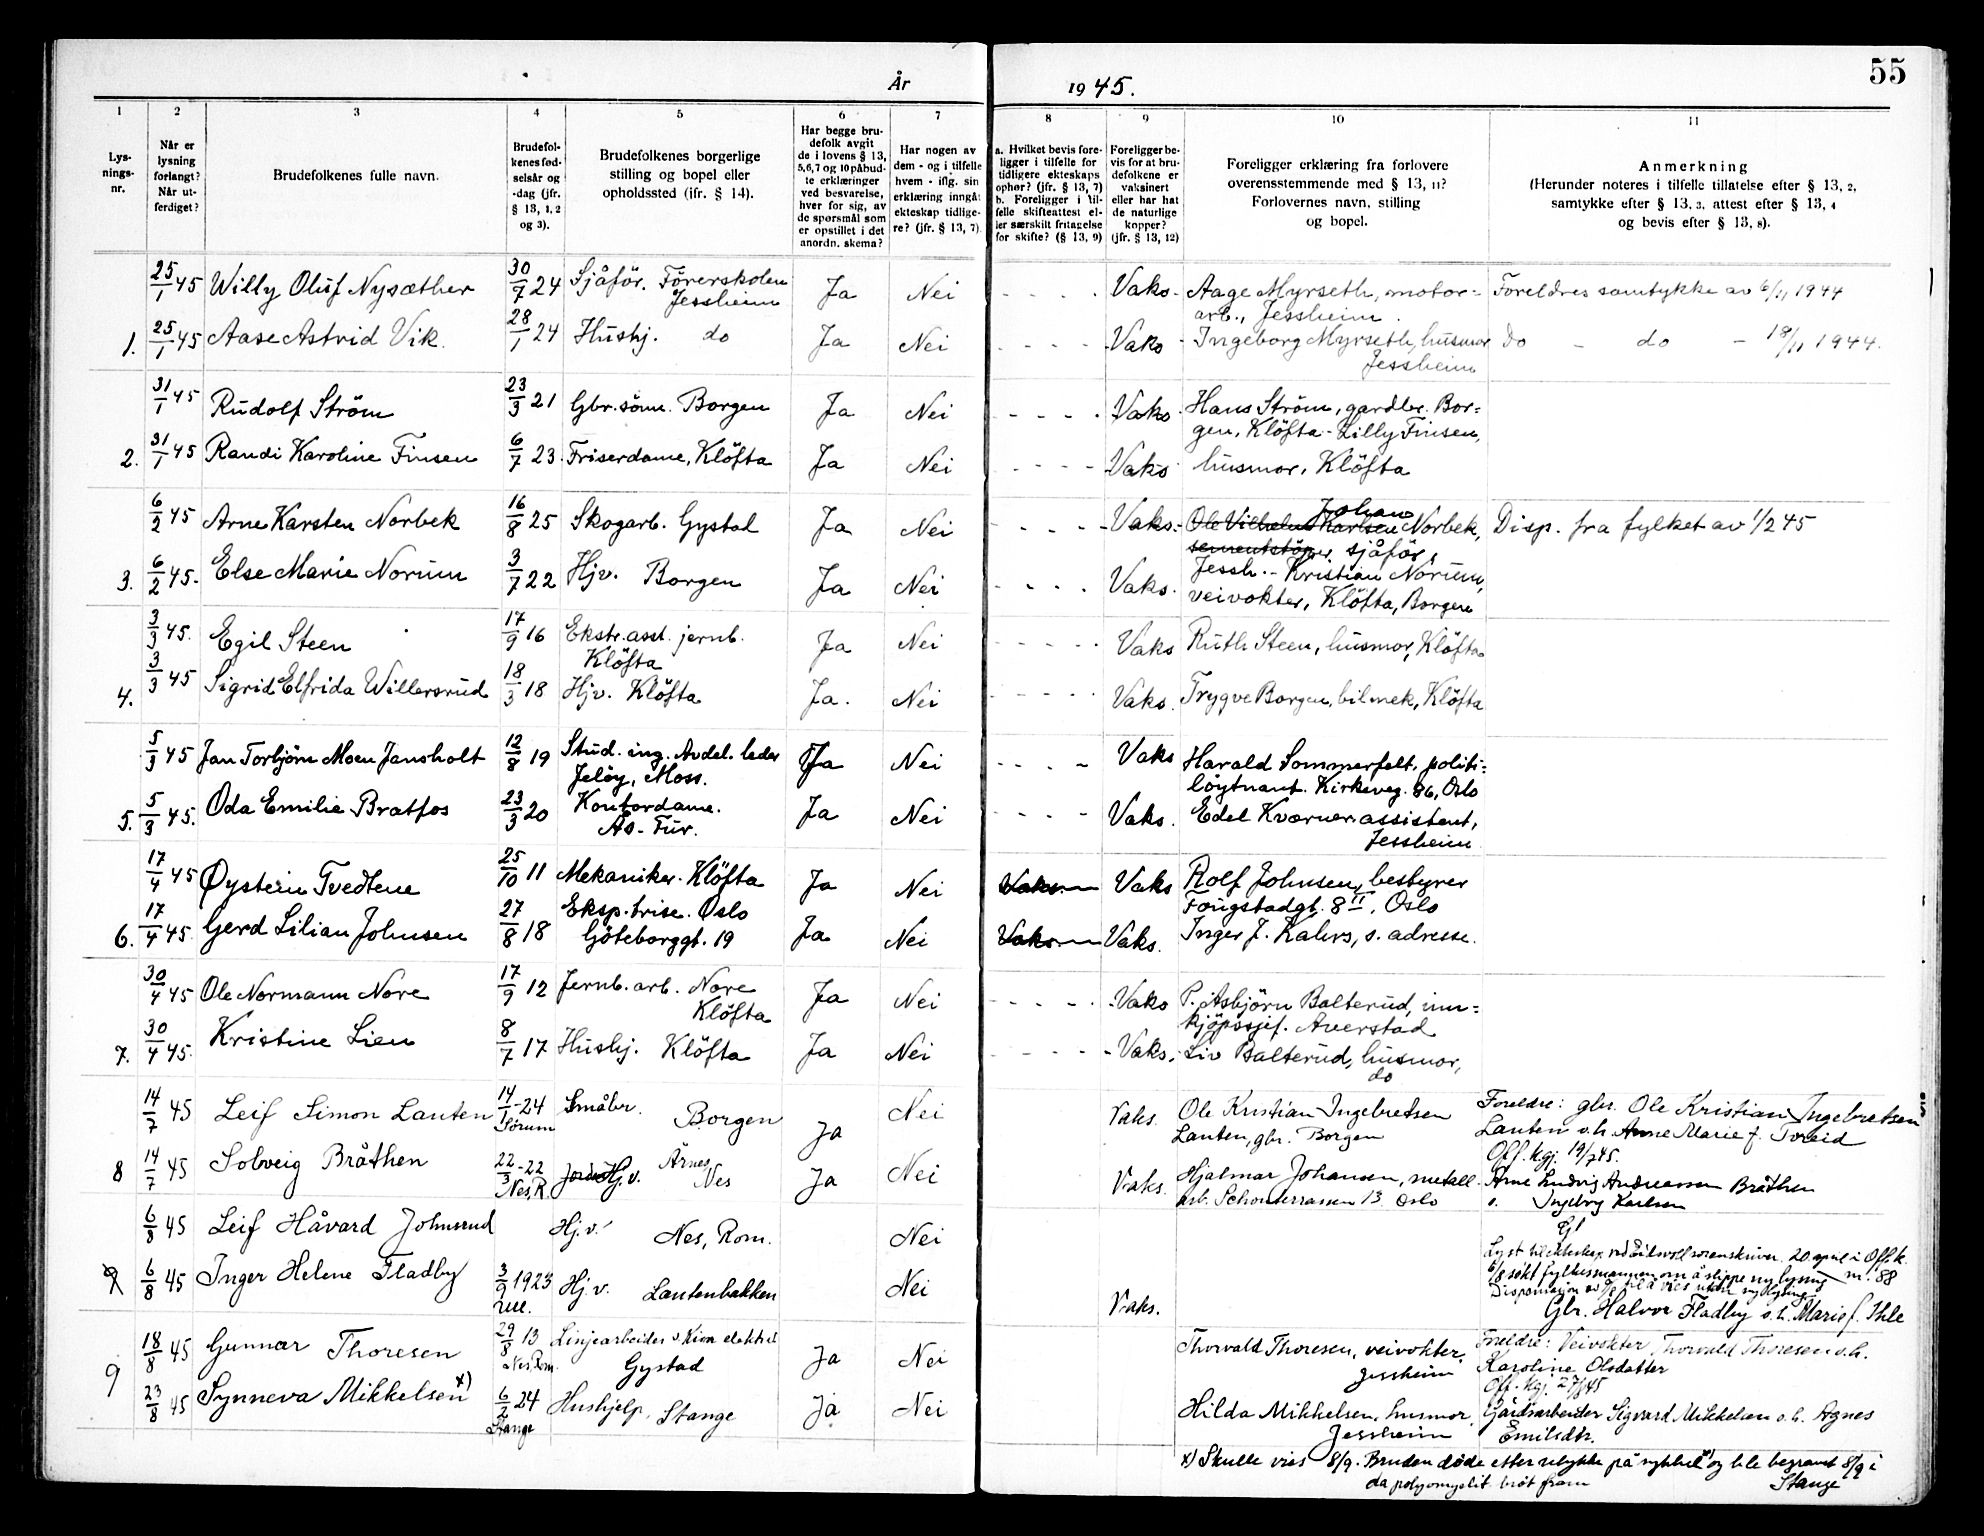 55
År 1945.
1 2 3 4 5 6 7 8 9 10 11
Lys-
nings-
nr.
Når er
lysning
forlangt?
Når ut-
ferdiget?
Brudefolkenes fulle navn.
Brudefol-
kenes fød-
selsår og
-dag (jfr.
§ 13, 1, 2
og 3).
Brudefolkenes borgerlige
stilling og bopel eller
opholdssted (ifr. § 14).
Har begge bru-
defolk avgit
de i lovens § 13,
5, 6, 7 og 10 påbud-
te erklæringer
ved besvarelse,
hver for sig, av
de spørsmål som
er opstillet i det
anordn. skema?
Har nogen av
dem - og i tilfelle
hvem - iflg. sin
erklæring inngåt
ekteskap tidlige-
re? (jfr. § 13, 7).
a. Hvilket bevis fore-
ligger i tilfelle for
tidligere ekteskaps
ophør? (jfr. § 13, 7)
b. Foreligger i til-
felle skifteattest el-
ler særskilt fritagelse
for skifte? (§ 13, 9)
Foreligger be-
vis for at bru-
defolkene er
vaksinert
eller har hat
de naturlige
kopper?
(jfr. § 13, 12)
Foreligger erklæring fra forlovere
overensstemmende med § 13, 11?
Forlovernes navn, stilling
og bopel.
Anmerkning
(Herunder noteres i tilfelle tillatelse efter § 13, 2,
samtykke efter § 13, 3, attest efter § 13, 4
og bevis efter § 13, 8).
25/1 45 Willy Oluf Nysæther 30/7 24 Sjåför. Förerskolen Ja Nei - - - - Vaks. Aage Myrseth, motor= Foreldres samtykke av 6/11 1944
Jessheim arb., Jessheim.
1. 25/1 45 Aase Astrid Vik. 28/1 24 Hushj. do Ja Nei - - - - Vaks - Ingeborg Myrseth, husmor Do - do - 18/11 1944.
Jessheim
31/1 45 Rudolf Ström 23/3 21 Gbr. sönn. Borgen Ja Nei - - - - Vaks. Hans Ström, gardbr. Bor=
gen, Klöfta - Lilly Finsen,
2. 31/1 45 Randi Karoline Finsen 6/7 23. Friserdame, Klöfta Ja Nei - - - - Vaks. husmor, Klöfta
Johan
6/2 45 Arne Karsten Norbek 16/8 25 Skogarb. Gystad Ja Nei - - - - Vaks. Ole Vilhelm Karlsen Norbek, Disp. fra fylket av 1/2 45
sementstöper, sjåför,
3. 6/2 45. Else Marie Norum 3/7 22 Hjv. Borgen Ja Nei - - - Vaks. Jessh. - Kristian Norum,
veivokter, Klöfta, Borgen
3/3 45. Egil Steen 17/9 16 Ekstr. asst. jernb. Ja Nei - - - - Vaks Ruth Steen, husmor, Klöfta
Klöfta
4. 3/3 45 Sigrid Elfrida Willersrud 18/3 18 Hjv. Klöfta Ja. Nei - - - - Vaks. Trygve Borgen, bilmek, Klöfta
5/3 45 Jan Torbjörn Moen Jansholt 12/8 19 Stud. ing. Avdel. leder Ja Nei - - - - Vaks Harald Sommerfelt, politi=
Jelöy, Moss. löytnant. Kirkeveg. 86, Oslo
5. 5/3 45. Oda Emilie Bratfos 23/3 20 Kontordame. Ja Nei - - - - Vaks. Edel Kværner assistent,
As - Tur. Jessheim
17/4 45 Øystein Tvedtene 25/10 11 Mekaniker. Klöfta Ja Nei Vaks. Vaks Rolf Johnsen, bestyrer
Fougstadgt. 8 II, Oslo
6. 17/4 45. Gerd Lilian Johnsen 27/8 18 Eksp. trise. Oslo Ja Nei Vaks. Vaks. Inger J. Kahrs, s. adresse.
Göteborggt. 19
30/4 45 Ole Normann Nore 17/9 12 Jernb. arb. Nore Ja Nei - - - - Vaks P. Asbjörn Balterud, inn=
Klöfta kjöpssjef. Averstad
7. 30/4 45. Kristine Lien 8/7 17 Hushj. Klöfta Ja Nei - - - - Vaks. Liv Balterud, husmor,
do
14/7 45 Leif Simon Lauten 14/1-24 Småbr. Borgen Ja Nei Vaks. Ole Kristian Ingebretsen Foreldre: gbr. Ole Kristian Ingebretsen
Sørum Lauten, gbr. Borgen Lauten o.h. Anne Marie f. Tveid
Off. kgj. 19/7 45.
8 14/7 45 Solveig Bråthen 22/3-22 Hj.v. Årnes Ja Nei Vaks. Hjalmar Johansen, metall Arne Ludvig Andreassen Bråthen
Nes, R. Nes arb. Schouterrassen 13 Oslo o. Ingeborg Karlsen
6/8 45 Leif Håvard Johnsrud Hj.v. Nes, Rom. Nei
Lyst til ekteskap ved Eidsvoll sorenskriver 20 april i Off. k.
6/8 søkt fylkesmannen om å slippe ny lysing nr. 88
9 6/8 45 Inger Helene Fladby 3/9 1923 Hj.v. Lautenbakken Nei Vaks.
Gbr. Halvor Fladby o.h. Marie f. Ihle
18/8 45 Gunnar Thoresen 29/8 13 Linjearbeider v Kien elektrit Ja Nei Thorvald Thoresen, veivokter, Foreldre: Veivokter Thorvald Thoresen o.h.
Nes Rom. Gystad Jessheim Karoline Olsdatter
Off. kgj. 27/8 45
9 23/8 45 Synneva Mikkelsen x) 6/2 24 Hushjelp, Stange Ja Nei Hilda Mikkelsen, husmor, Gårdsarbeider Sigvard Mikkelsen o.h. Agnes
Stange Jessheim Emilsdtr.
x) Skulle vies 8/9. Bruden døde etter ulykke på sykkel x) og ble begravet 8/9 i
da polyomyelit brøt fram Stange